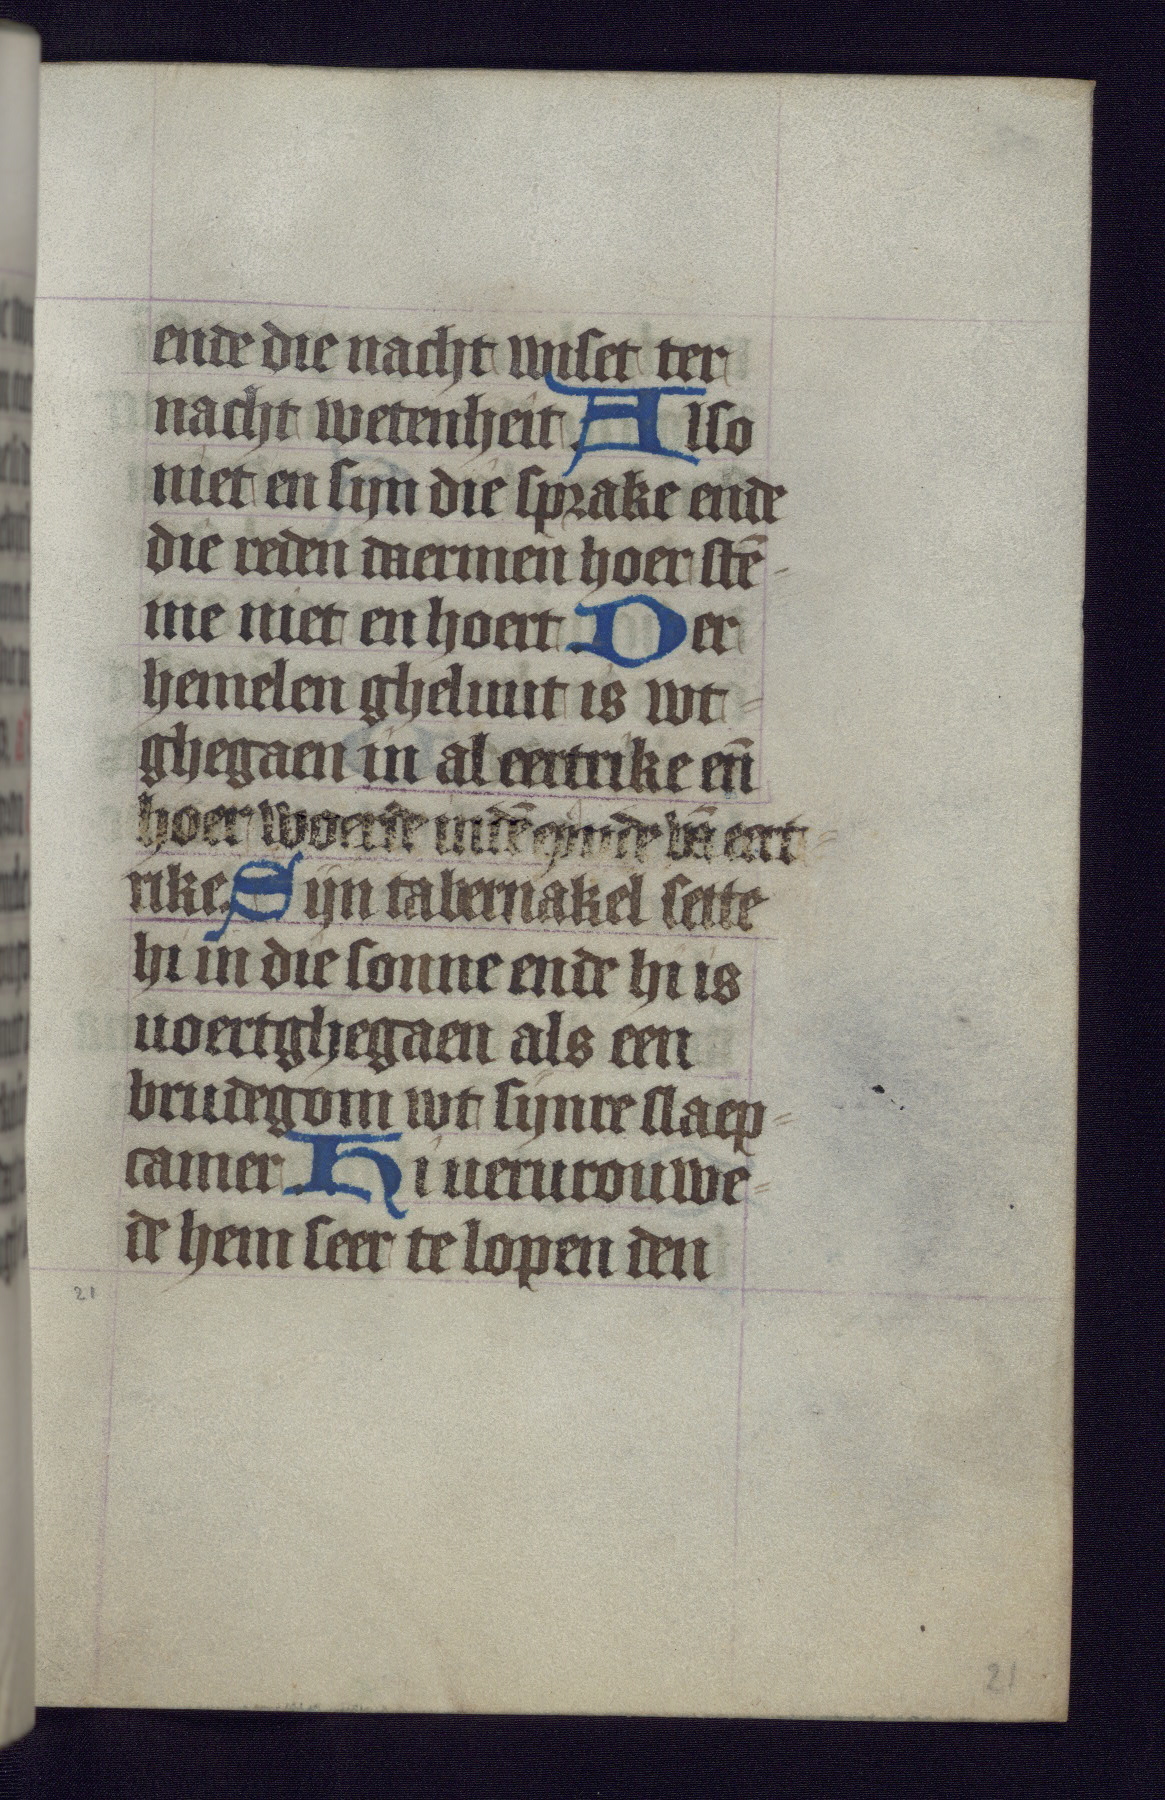 ende die nacht wiset ter
nacht wetenheit. Also
niet en sijn die sprake ende
die reden daermen hoer stē-
me niet en hoert. Der
hemelen gheluut is wt-
ghegaen in al eertrike eñ
hoer woerde indē eynde vā eert-
rike. Sijn tabernakel sette
hi in die sonne ende hi is
uoertghegaen als een
brudegom wt sijnre slaep-
camer. Hi uerurouwe-
de hem seer te lopen den
21
21